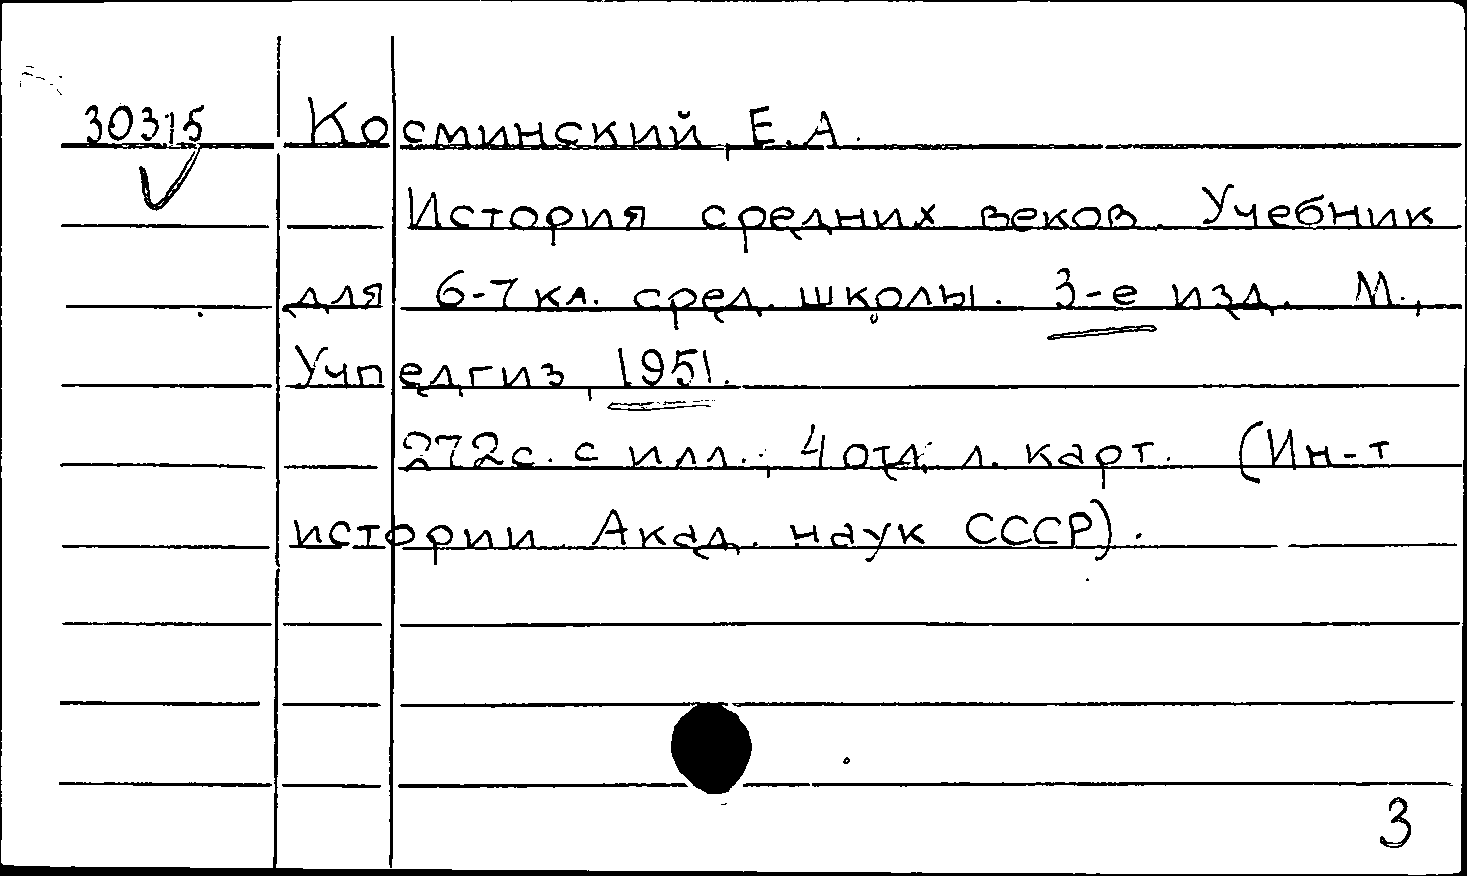 30315 Косминский, Е.А.
История средних веков. Учебник
для 6-7 кл. сред. школы. 3-е изд. М.,
Учпедгиз, 1951.
272с. с илл., 4 отд. л. карт. (Ин-т
истории Акад. наук СССР).
3